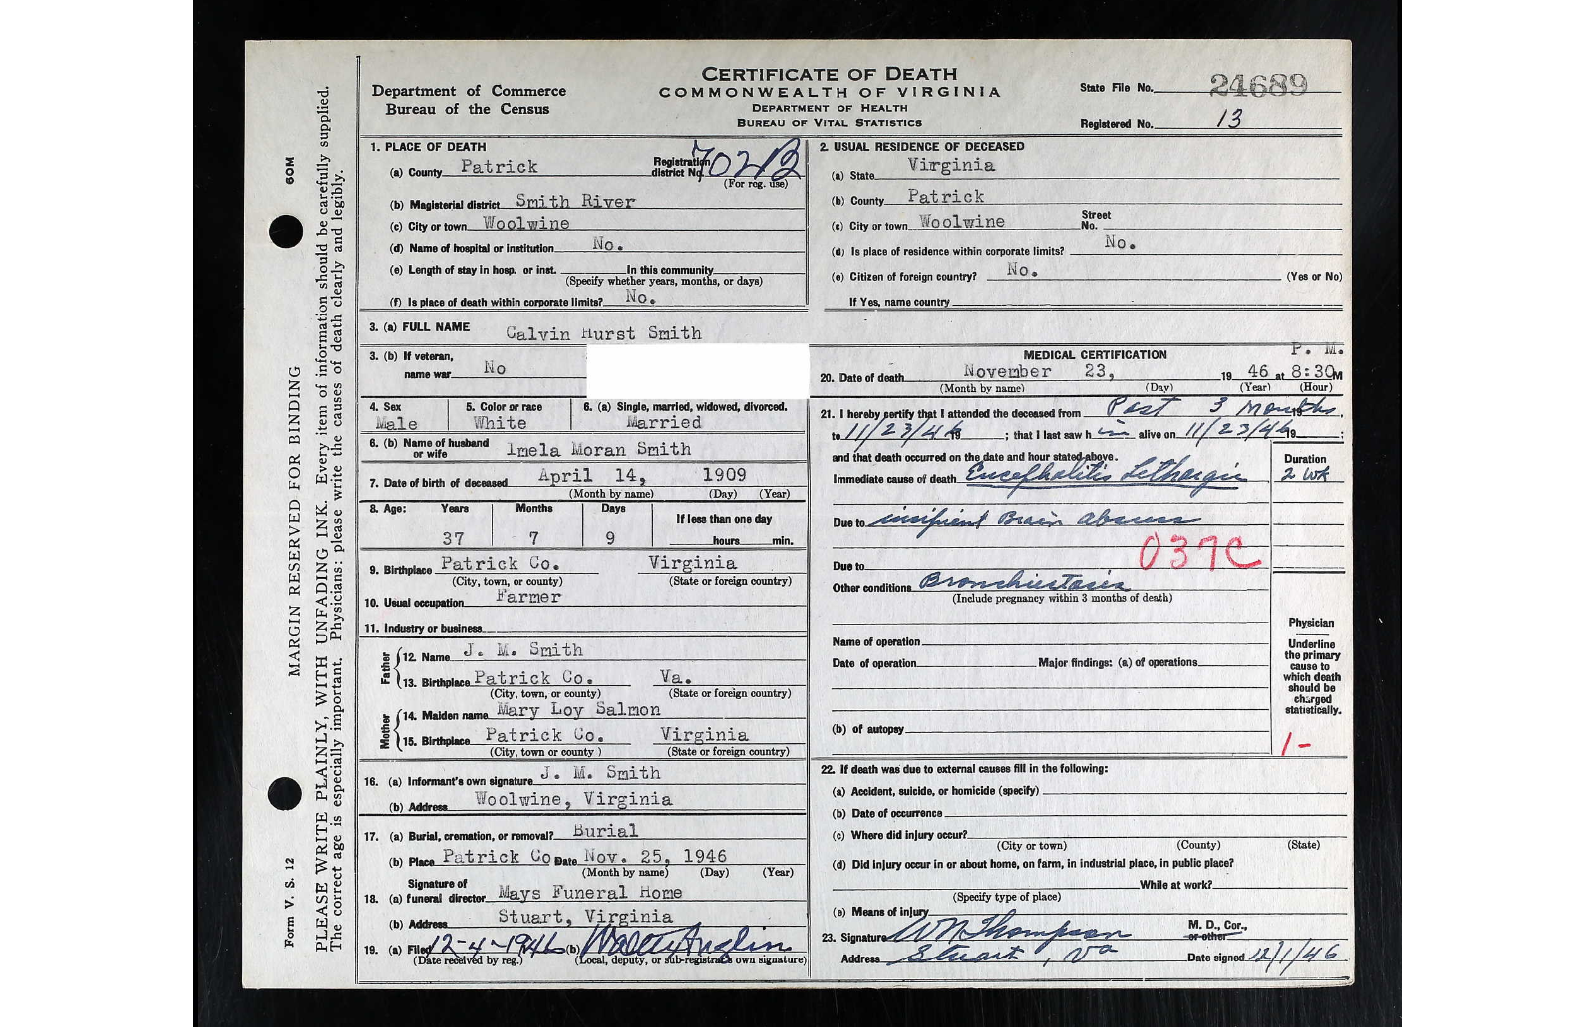 CERTIFICATE OF DEATH
COMMONWEALTH OF VIRGINIA
DEPARTMENT OF HEALTH
BUREAU OF VITAL STATISTICS
Department of Commerce
Bureau of the Census
State File No. 24689
Registered No. 13
60M
MARGIN RESERVED FOR BINDING
Form V. S. 12
PLEASE WRITE PLAINLY, WITH UNFADING INK. Every item of information should be carefully supplied.
The correct age is especially important. Physicians: please write the causes of death clearly and legibly.
1. PLACE OF DEATH
(a) County Patrick Registration district No. 702B
(For reg. use)
(b) Magisterial district Smith River
(c) City or town Woolwine
(d) Name of hospital or institution No.
(e) Length of stay in hosp. or inst. In this community
(Specify whether years, months, or days)
(f) Is place of death within corporate limits? No.
2. USUAL RESIDENCE OF DECEASED
(a) State Virginia
(b) County Patrick
(c) City or town Woolwine Street No.
(d) Is place of residence within corporate limits? No.
(e) Citizen of foreign country? No. (Yes or No)
If Yes, name country
3. (a) FULL NAME Calvin Hurst Smith
3. (b) If veteran, name war No
4. Sex Male
5. Color or race White
6. (a) Single, married, widowed, divorced. Married
6. (b) Name of husband or wife Imela Moran Smith
7. Date of birth of deceased April 14, 1909
(Month by name) (Day) (Year)
8. Age: Years Months Days If less than one day
37 7 9 hours min.
9. Birthplace Patrick Co. Virginia
(City, town, or county) (State or foreign country)
10. Usual occupation Farmer
11. Industry or business
Father
12. Name J. M. Smith
13. Birthplace Patrick Co. Va.
(City, town, or county) (State or foreign country)
Mother
14. Maiden name Mary Loy Salmon
15. Birthplace Patrick Co. Virginia
(City, town or county ) (State or foreign country)
16. (a) Informant's own signature J. M. Smith
(b) Address Woolwine, Virginia
17. (a) Burial, cremation, or removal? Burial
(b) Place Patrick Co Date Nov. 25, 1946
(Month by name) (Day) (Year)
18. (a) Signature of funeral director Mays Funeral Home
(b) Address Stuart, Virginia
19. (a) Filed 12-4-1946 (b) Walter Anglin
(Date received by reg.) (Local, deputy, or sub-registrar's own signature)
MEDICAL CERTIFICATION
P. M.
20. Date of death November 23, 19 46 at 8:30 M
(Month by name) (Day) (Year) (Hour)
21. I hereby certify that I attended the deceased from Past 3 Months 19 ,
to 11/23/46 19 ; that I last saw h im alive on 11/23/46 19 ;
and that death occurred on the date and hour stated above.
Duration
Immediate cause of death Encephalitis Lethargic 2 wk
Due to insipient Brain abscess
037C
Due to
Other conditions Bronchiectasis
(Include pregnancy within 3 months of death)
Name of operation
Date of operation Major findings: (a) of operations
(b) of autopsy
Physician
Underline
the primary
cause to
which death
should be
charged
statistically.
1-
22. If death was due to external causes fill in the following:
(a) Accident, suicide, or homicide (specify)
(b) Date of occurrence
(c) Where did injury occur?
(City or town) (County) (State)
(d) Did injury occur in or about home, on farm, in industrial place, in public place?
While at work?
(Specify type of place)
(e) Means of injury
23. Signature WN Thompson M. D., Cor., or other
Address Stuart, Va Date signed 12/1/46